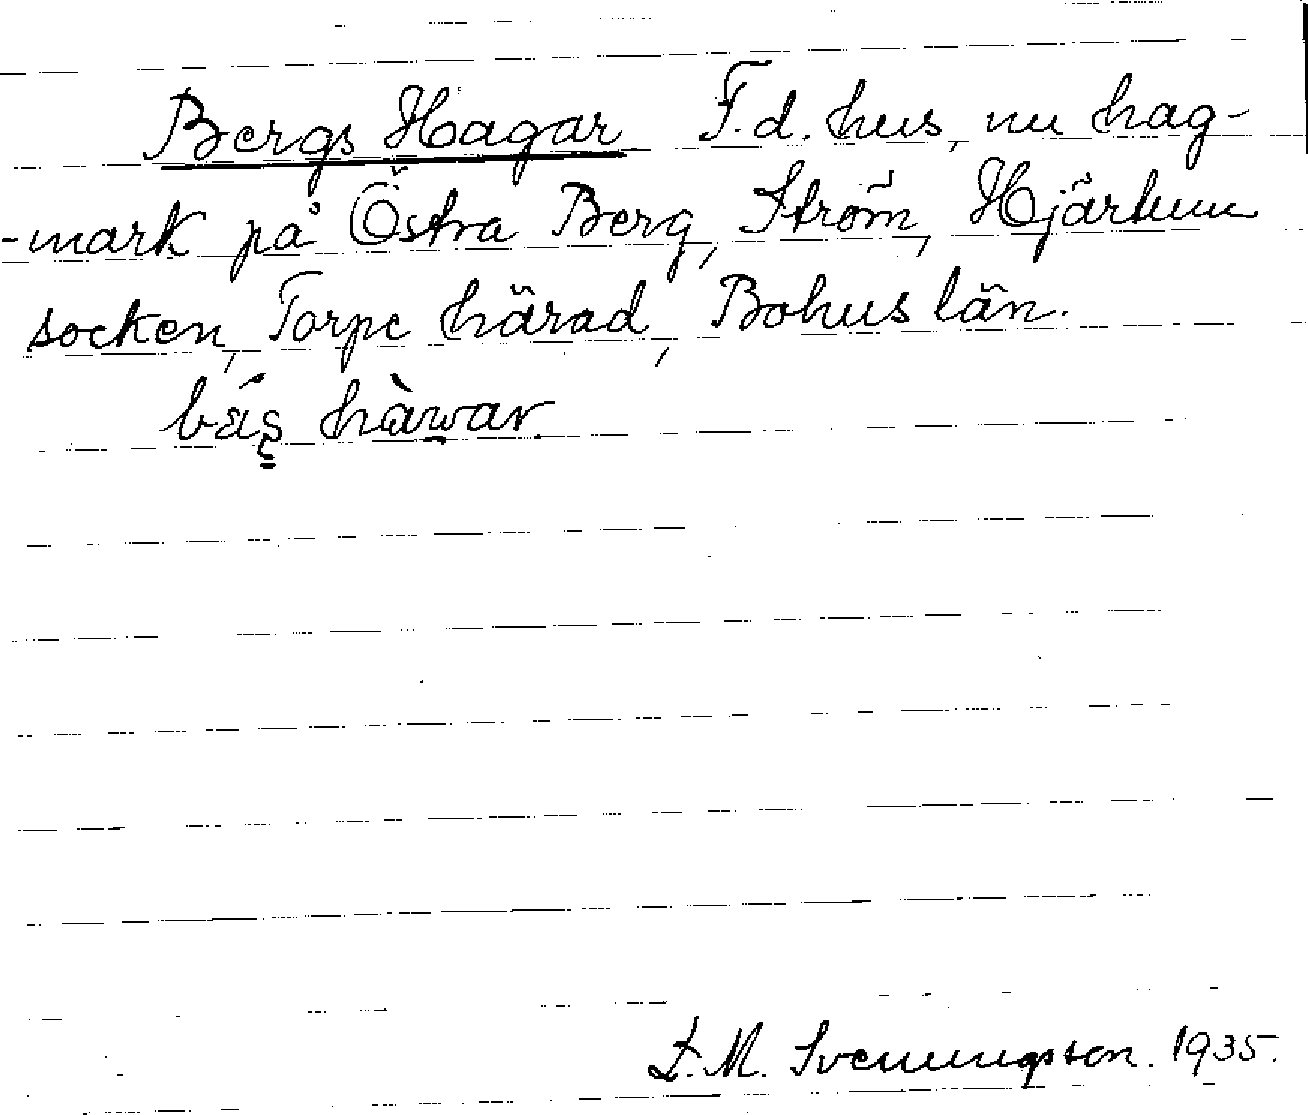 Bergs Hagar F.d. hus, nu hag-
-mark på Östra Berg, Ström, Hjärtum
socken, Torpe härad, Bohus län.
hàwar
L.M. Svenungsson. 1935.